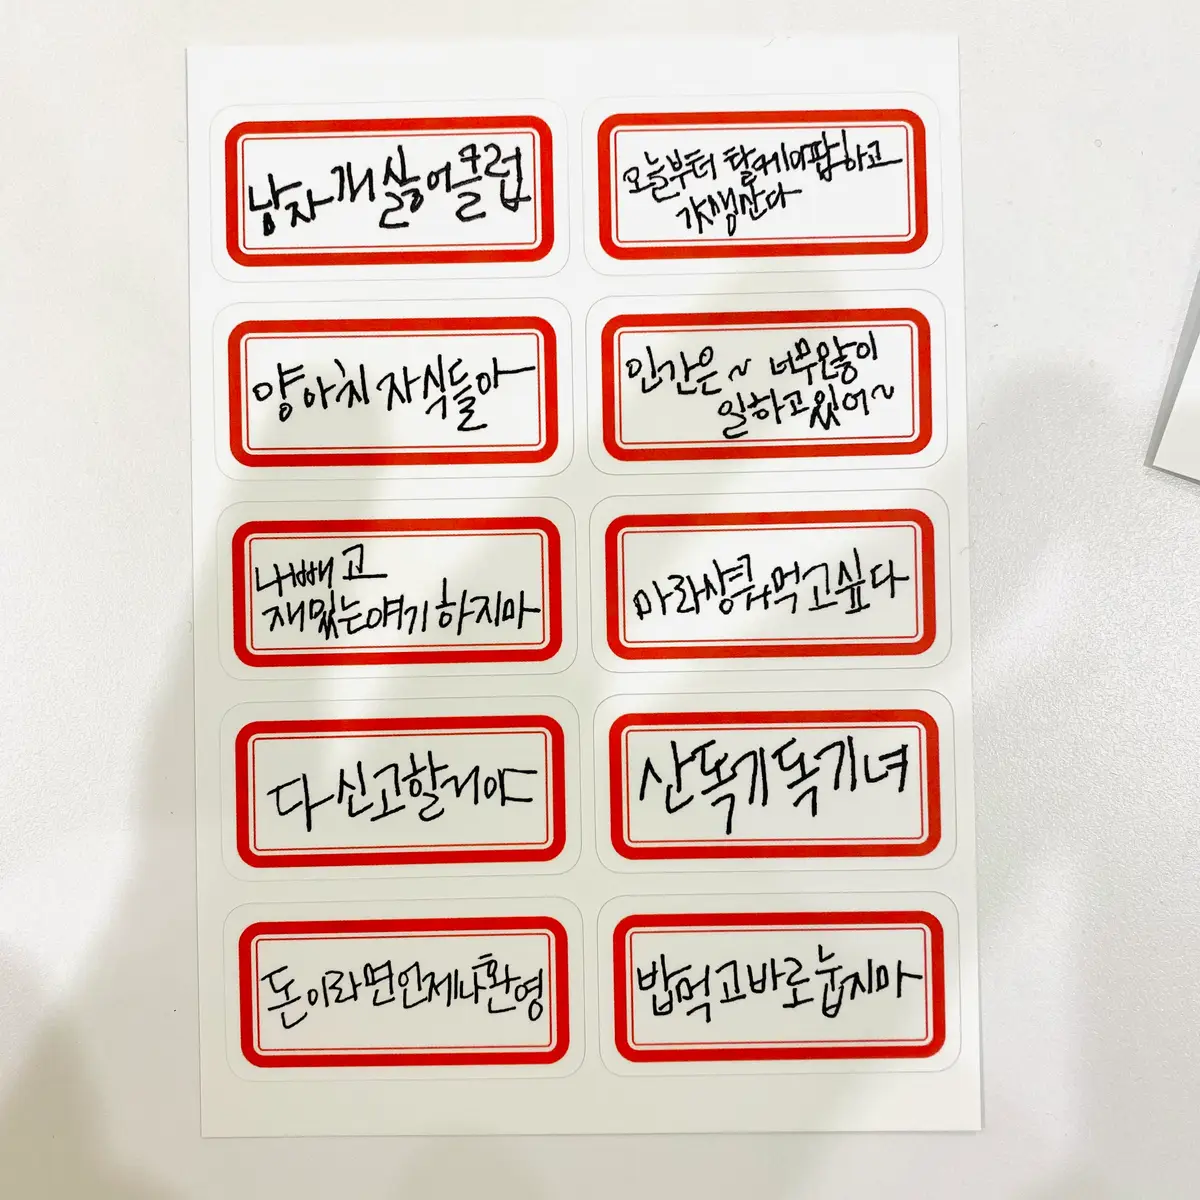 낭자개싫어클럽
오늘부터 탈케이팝하고
갓생산다
양아치 자식들아
인간은~ 너무많이
일하고있어~
나빼고
재밌는얘기하지마
마라샹궈먹고싶다
다신고할거야
산독기독기녀
돈이라면언제나환영
밥먹고바로눕지마